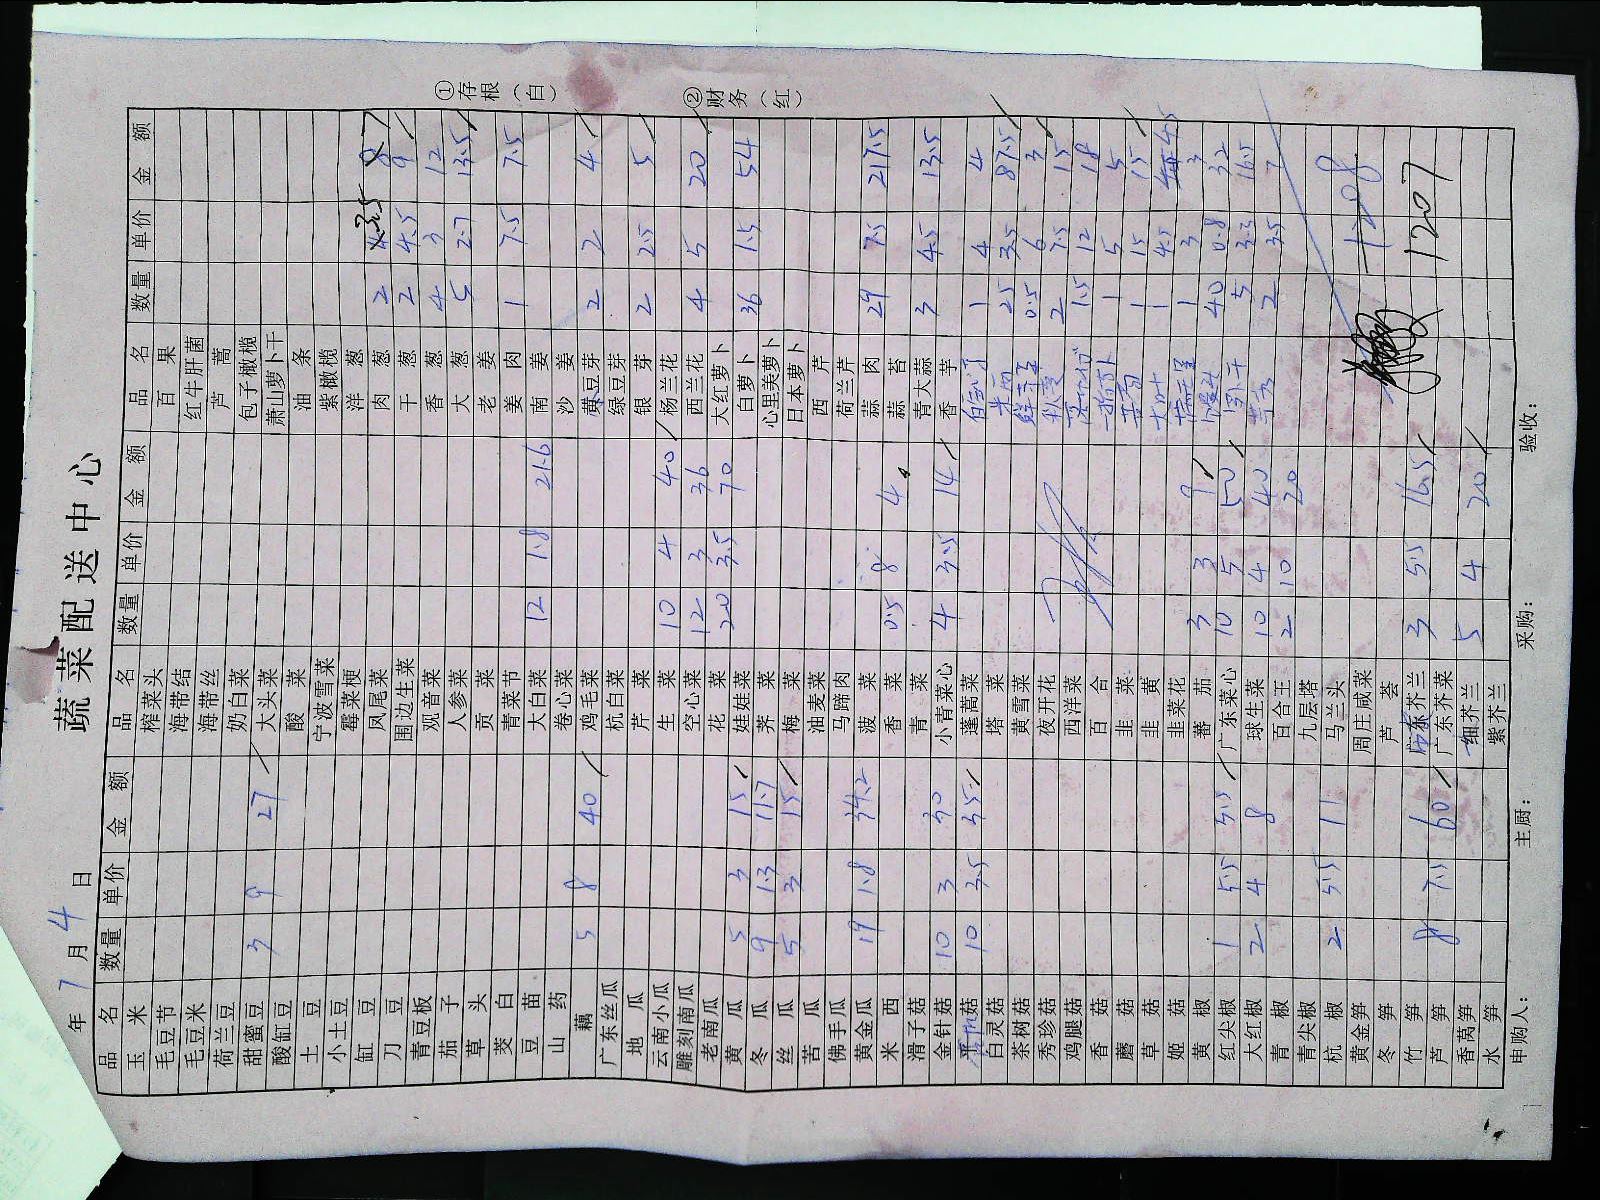 蔬菜配送中心
年 7月4日
品名 数量 单价 金额 品名 数量 单价 金额 品名 数量 单价 金额
玉米 榨菜头 百果
毛豆节 海带结 红牛肝菌
毛豆米 海带丝 芦蒿
荷兰豆 奶白菜 包子橄榄
甜蜜豆 3 9 27 大头菜 萧山萝卜干
酸缸豆 酸菜 油条
土豆 宁波雪菜 紫橄榄
小土豆 霉菜梗 洋葱
缸豆 凤尾菜 肉葱 2 3.5 7
刀豆 围边生菜 干葱 2 4.5 9
青豆板 观音菜 香葱 4 3 12
茄子 人参菜 大葱 5 2.7 13.5
草头 贡菜 老姜
茭白 青菜节 姜肉 1 7.5 7.5
豆苗 大白菜 12 1.8 21.6 南姜
山药 卷心菜 沙姜
藕 5 8 40 鸡毛菜 黄豆芽 2 2 4
广东丝瓜 杭白菜 绿豆芽
地瓜 芹菜 银芽 2 2.5 5
云南小瓜 生菜 10 4 40 杨兰花
雕刻南瓜 空心菜 12 3 36 西兰花 4 5 20
老南瓜 花菜 20 3.5 70 大红萝卜
黄瓜 5 3 15 娃娃菜 白萝卜 36 1.5 54
冬瓜 9 1.3 11.7 荠菜 心里美萝卜
丝瓜 5 3 15 梅菜 日本萝卜
苦瓜 油麦菜 西芹
佛手瓜 马蹄肉 荷兰芹
黄金瓜 19 1.8 34.2 菠菜 蒜肉 29 7.5 217.5
米西 香菜 0.5 8 4 蒜苔
滑子菇 青菜 青大蒜 3 4.5 13.5
金针菇 10 3 30 小青菜心 4 3.5 14 香芋
平菇 10 3.5 35 蓬蒿菜 1 4 4
白灵菇 塔菜 25 3.5 87.5
茶树菇 黄雪菜 0.5 6 3
秀珍菇 夜开花 2 7.5 15
鸡腿菇 西洋菜 1.5 12 18
香菇 百合 1 5 5
蘑菇 韭菜 1 15 15
草菇 韭黄 1 4.5 4.5
姬菇 韭菜花 1 3 3
黄椒 蕃茄 3 3 9 40 0.8 32
红尖椒 1 5.5 5.5 广东菜心 10 5 50 5 3.3 16.5
大红椒 2 4 8 球生菜 10 4 40 2 3.5 7
青椒 百合王 2 10 20
青尖椒 九层塔
杭椒 2 5.5 11 马兰头
黄金笋 周庄咸菜 1208
冬笋 芦荟
竹笋 广东芥兰 3 5.5 16.5 1207
芦笋 8 7.5 60 广东芥菜
香莴笋 细芥兰 5 4 20
水笋 紫芥兰
申购人： 主厨： 采购： 验收：
①存根（白）
②财务（红）